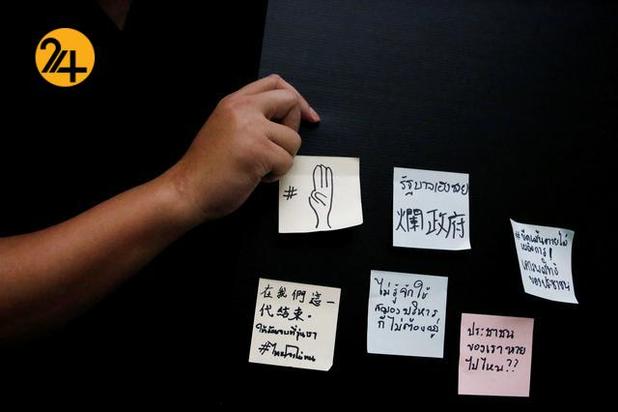 24
#
รัฐบาลเฮงซวย
爛政府
#ขีดเส้นตายไล่
เผด็จการ!
เคารพสิทธิ
ของประชาชน
在我們這一
代結束.
ให้มันจบที่รุ่นเรา
ไม่รู้จักใช้
สมองบริหาร
ก็ไม่ต้องอยู่
ประชาชน
ของเราหาย
ไปไหน??